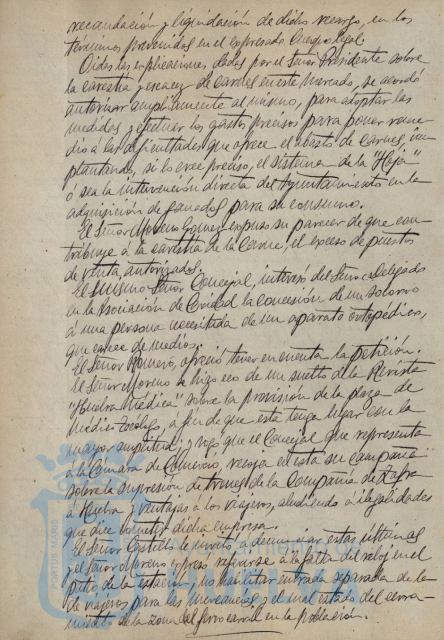 recaudación y liquidación de dicho recargo, en los
términos prevenidos en el expresado cuerpo legal.
Oidas las explicaciones dadas por el Señor Presidente sobre
la carestía y escasez de carnes en este mercado, se acordó
autorizar ampliamente al mismo, para adoptar las
medidas y efectuar los gastos precisos para poner reme-
dio a las dificultades que ofrece el abasto de carnes, im-
plantando, si lo cree preciso, el sistema de la "Hoja"
ó sea la intervención directa del Ayuntamiento en la
adquisición de ganados para su consumo.
El Señor Moreno Gomez expuso su parecer de que con-
tribuye á la carestía de la carne, el exceso de puestos
de venta autorizados.
El mismo Señor Concejal, interesó del Señor Delegado
en la Asociación de Caridad la concesión de un socorro
á una persona necesitada de un aparato ortopédico,
que carece de medios.
El Señor Romero, ofreció tener en cuenta la petición.
El Señor Moreno se hizo eco de un suelto de la Revista
"Huelva Médica" sobre la provisión de la plaza de
Medico Tocólogo, a fin de que esta tenga lugar con la
mayor amplitud; y rogó que el Concejal que representa
a la Cámara de Comercio, recoja en esta su campaña
sobre la supresión de trenes de la Compañía de Zafra
á Huelva y ventajas a los viajeros, aludiendo á ilegalidades
que dice comete dicha empresa.
El Señor Castillo le invitó a denunciar estas últimas
y el Señor Moreno expresó referirse á la falta del reloj en el
patio de la estación, no habilitar entrada separada de la
de viajeros para las mercancías y el mal estado del cerra-
miento de la zona del ferrocarril en la población.
PORTUS MARIS
Ayuntamiento de
HUELVA